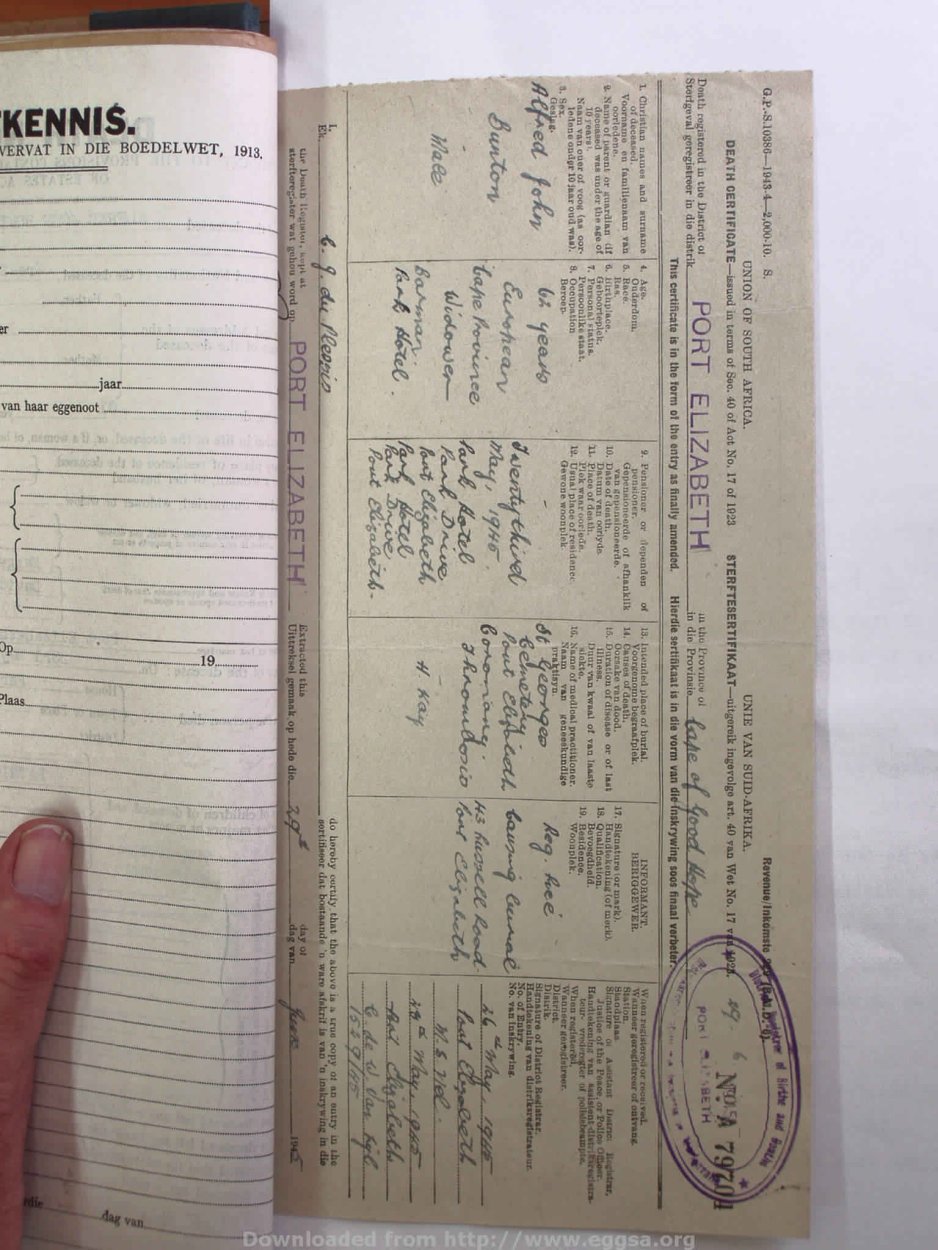 KENNIS.
VERVAT IN DIE BOEDELWET, 1913.
er
jaar
van haar eggenoot
Op 19
Plaas
die
dag van
G.P.S.10386—1943-4—2,000-10. S.
UNION OF SOUTH AFRICA.
UNIE VAN SUID-AFRIKA.
DEATH CERTIFICATE—issued in terms of Sec. 40 of Act No. 17 of 1923
STERFTESERTIFIKAAT—uitgereik ingevolge art. 40 van Wet No. 17 van 1923.
Death registered in the District of
Sterfgeval geregistreer in die distrik
PORT ELIZABETH
in the Province of
in die Provinsie
Cape of Good Hope
This certificate is in the form of the entry as finally amended.
Hierdie sertifikaat is in die vorm van die inskrywing soos finaal verbeter.
No. A 7970
19 6
PORT ELIZABETH
1. Christian names and surname of deceased.
Voorname en familienaam van oorledene.
2. Name of parent or guardian (if deceased was under the age of 10 years).
Naam van ouer of voog (as oorledene onder 10 jaar oud was).
3. Sex.
Geslag.
Alfred John
Bunton
-
Male
4. Age.
Ouderdom.
5. Race.
Ras.
6. Birthplace.
Geboorteplek.
7. Personal status.
Persoonlike staat.
8. Occupation
Beroep.
European
Cape Province
Widower
Barman.
Park Hotel.
9. Pensioner or dependen of pensioner.
Gepensioneerde of afhanklik van gepensioneerde.
10. Date of death.
Datum van oorlyde.
11. Place of death.
Plek waar oorlede.
12. Usual place of residence.
Gewone woonplek
-
Twentythird
May 1945.
Park Hotel
Park Drive
Port Elizabeth
Park Hotel
Park Drive
Port Elizabeth.
13. Intended place of burial.
Voorgenome begraafplek.
14. Causes of death.
Oorsake van dood.
15. Duration of disease or of last illness.
Duur van kwaal of van laaste siekte.
16. Name of medical practitioner.
Naam van geneeskundige praktisyn.
St Georges
Cemetery
Port Elizabeth
Coronary
Thrombosis
-
H. Kay
INFORMANT.
BERIGGEWER.
17. Signature (or mark).
Handtekening (of merk).
18. Qualification.
Bevoegdheid.
19. Residence.
Woonplek.
causing burial
43 Russell Road
Port Elizabeth
When registered or received.
Wanneer geregistreer of ontvang.
Station.
Standplaas.
Signature of Assistant District Registrar, Justice of the Peace, or Police Officer.
Handtekening van assistent-distriksregistrateur, vrederegter of polisiebeampte.
When registered.
Wanneer geregistreer.
District.
Distrik.
Signature of District Registrar.
Handtekening van distriksregistrateur.
No. of Entry.
No. van inskrywing.
26th May 1945
Port Elizabeth
29th May 1945
Port Elizabeth
I,
Ek,
C. J. du Plessis
do hereby certify that the above is a true copy of an entry in the
sertifiseer dat bostaande 'n ware afskrif is van 'n inskrywing in die
the Death Register, kept at
sterfteregister wat gehou word op
PORT ELIZABETH
Extracted this
Uittreksel gemaak op hede die
29th
day of
dag van
June
1945
Downloaded from http://www.eggsa.org